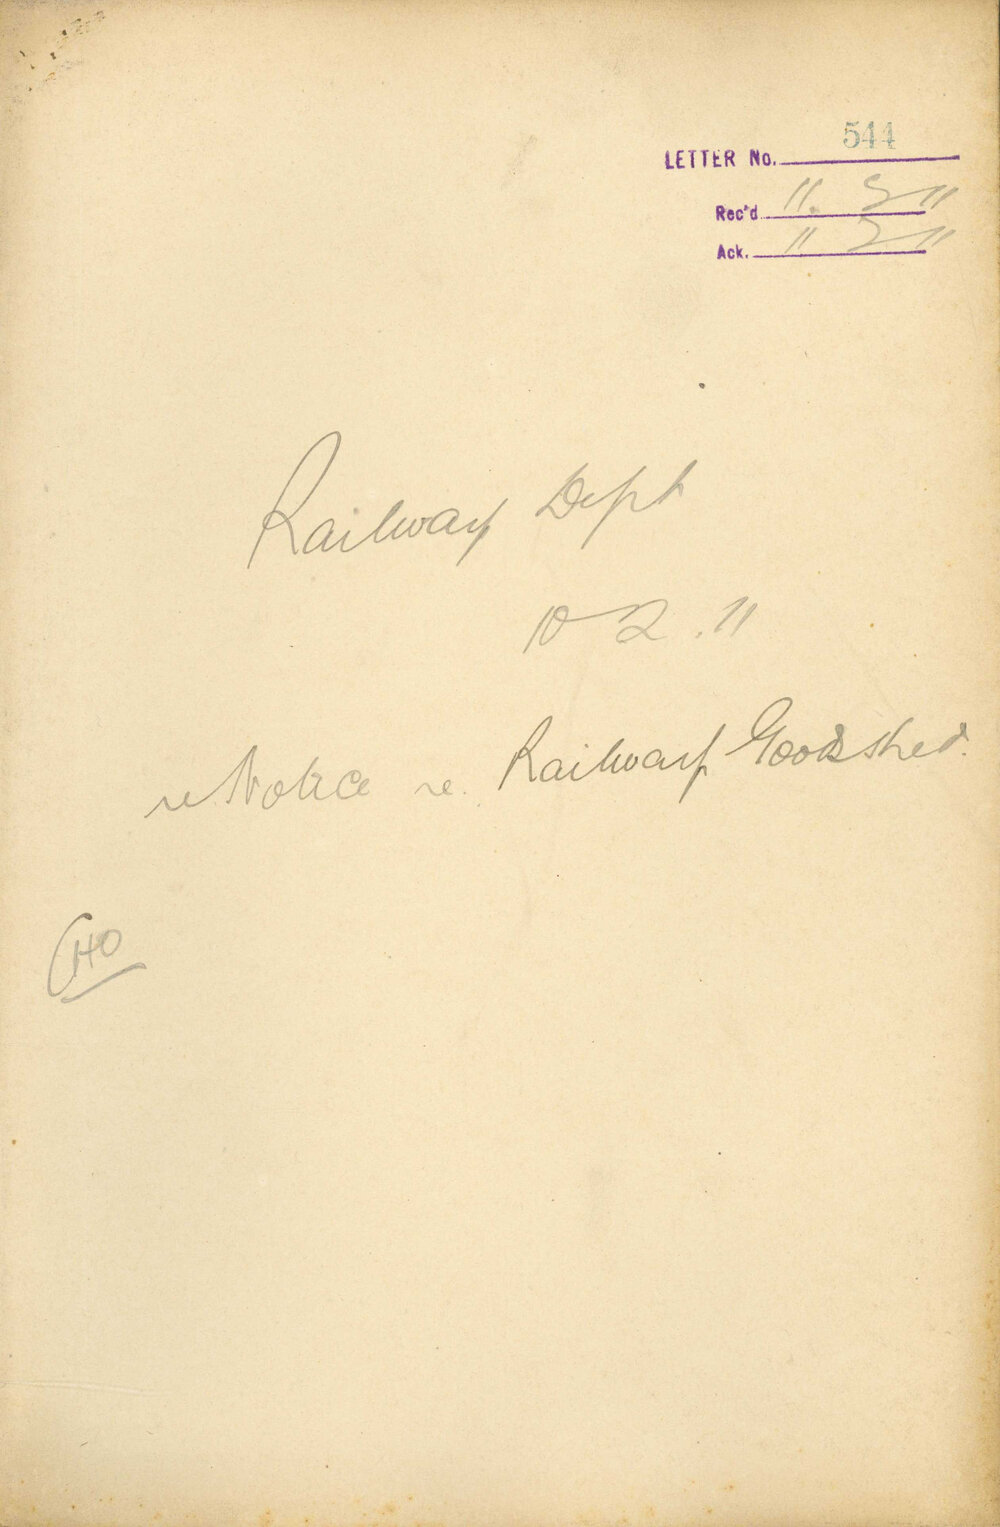 LETTER No. 544
Rec'd 11. 2 11
Ack. 11 2 11
Railway Dept
10 2 . 11
re Notice re. Railway Goods shed.